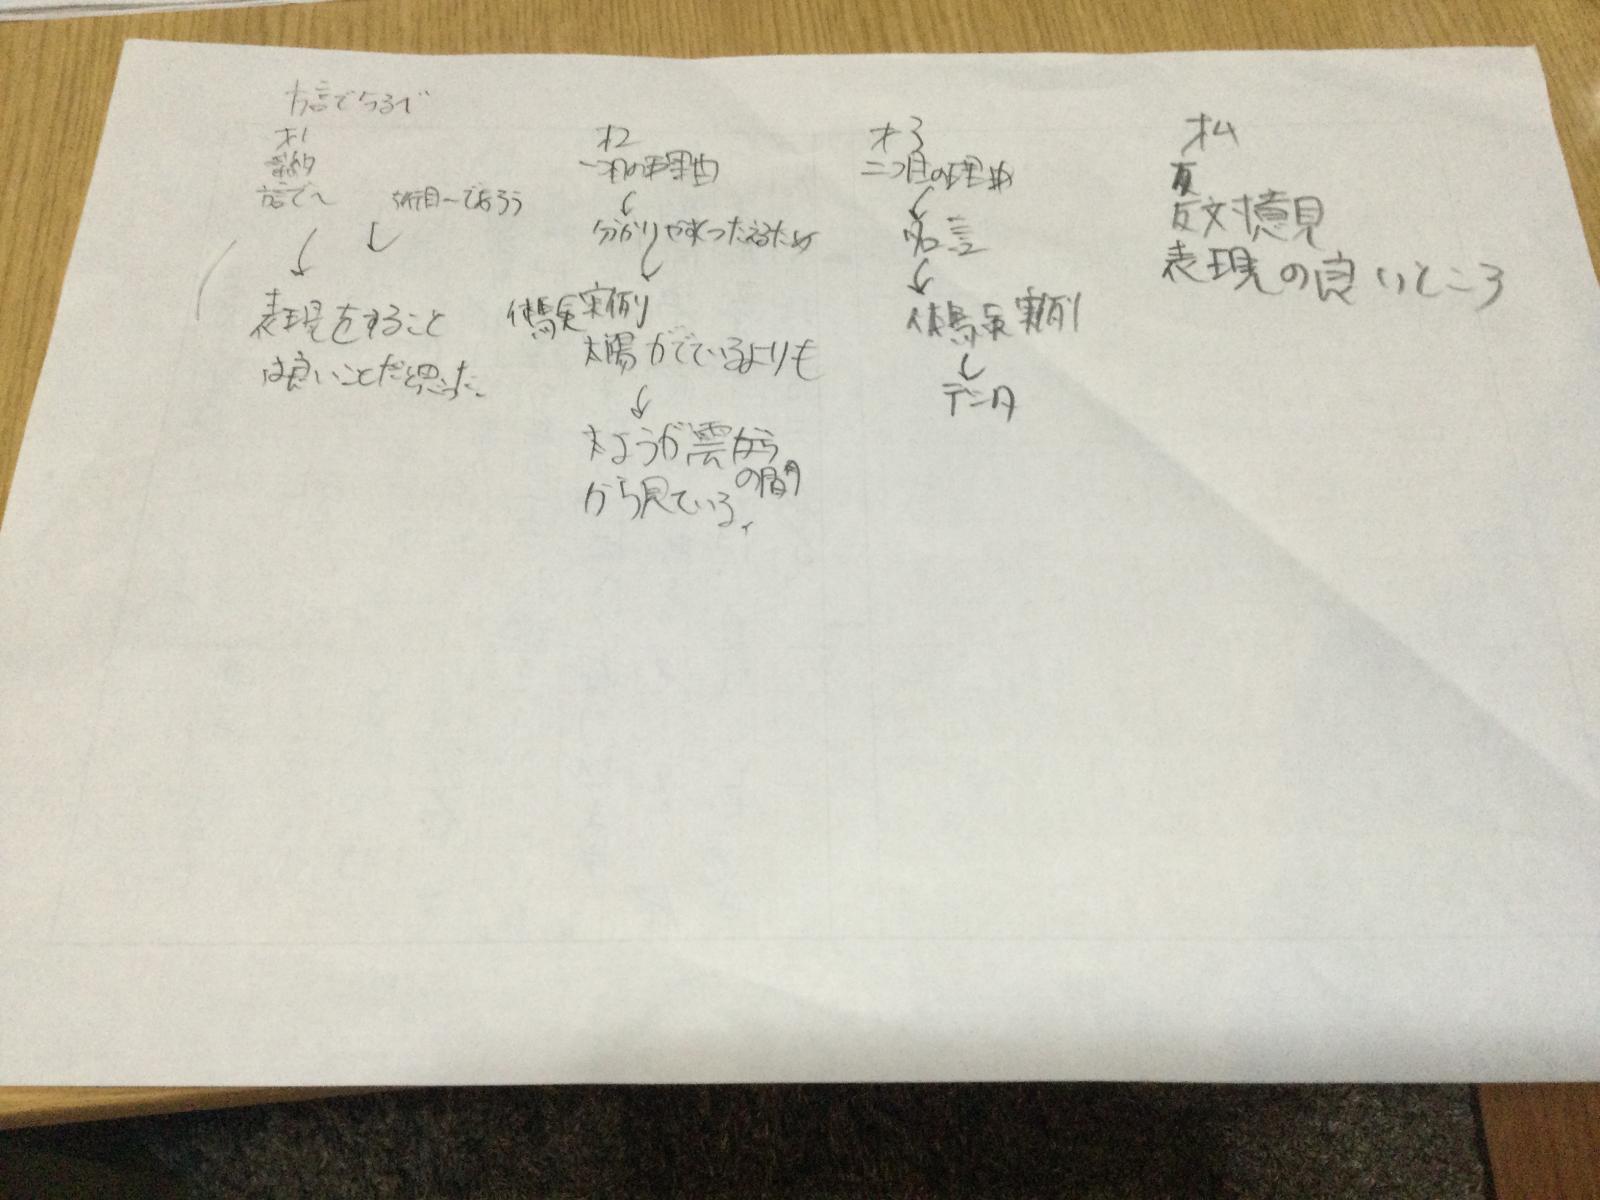 才1
要約
表現をすること
は良いことだと思った。
才2
一つ目の理由
分かりやすくつたえるため
体験実例
太陽がでているよりも
太ようが雲から
の間
から見ている。
才3
二つ目の理由
名言
体験実例
データ
才4
反対意見
表現の良いところ